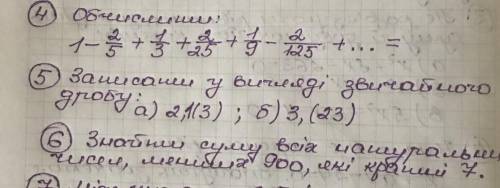 ④ Обчислити:
1 - 2/5 + 1/3 + 2/25 + 1/9 - 2/125 + ... =
⑤ Записати у вигляді звичайного
дробу:
а) 2,1(3) ; б) 3,(23)
⑥ Знайти суму всіх натуральних
чисел, менших 900, які кратні 7.